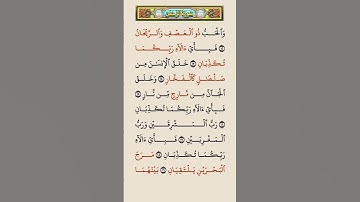 وَٱلْحَبُّ ذُو ٱلْعَصْفِ وَٱلرَّيْحَانُ
۝ فَبِأَىِّ ءَالَآءِ رَبِّكُمَا
تُكَذِّبَانِ ۝ خَلَقَ ٱلْإِنسَٰنَ مِن
صَلْصَٰلٍ كَٱلْفَخَّارِ ۝ وَخَلَقَ
ٱلْجَآنَّ مِن مَّارِجٍ مِّن نَّارٍ ۝
فَبِأَىِّ ءَالَآءِ رَبِّكُمَا تُكَذِّبَانِ
۝ رَبُّ ٱلْمَشْرِقَيْنِ وَرَبُّ
ٱلْمَغْرِبَيْنِ ۝ فَبِأَىِّ ءَالَآءِ
رَبِّكُمَا تُكَذِّبَانِ ۝ مَرَجَ
ٱلْبَحْرَيْنِ يَلْتَقِيَانِ ۝ بَيْنَهُمَا